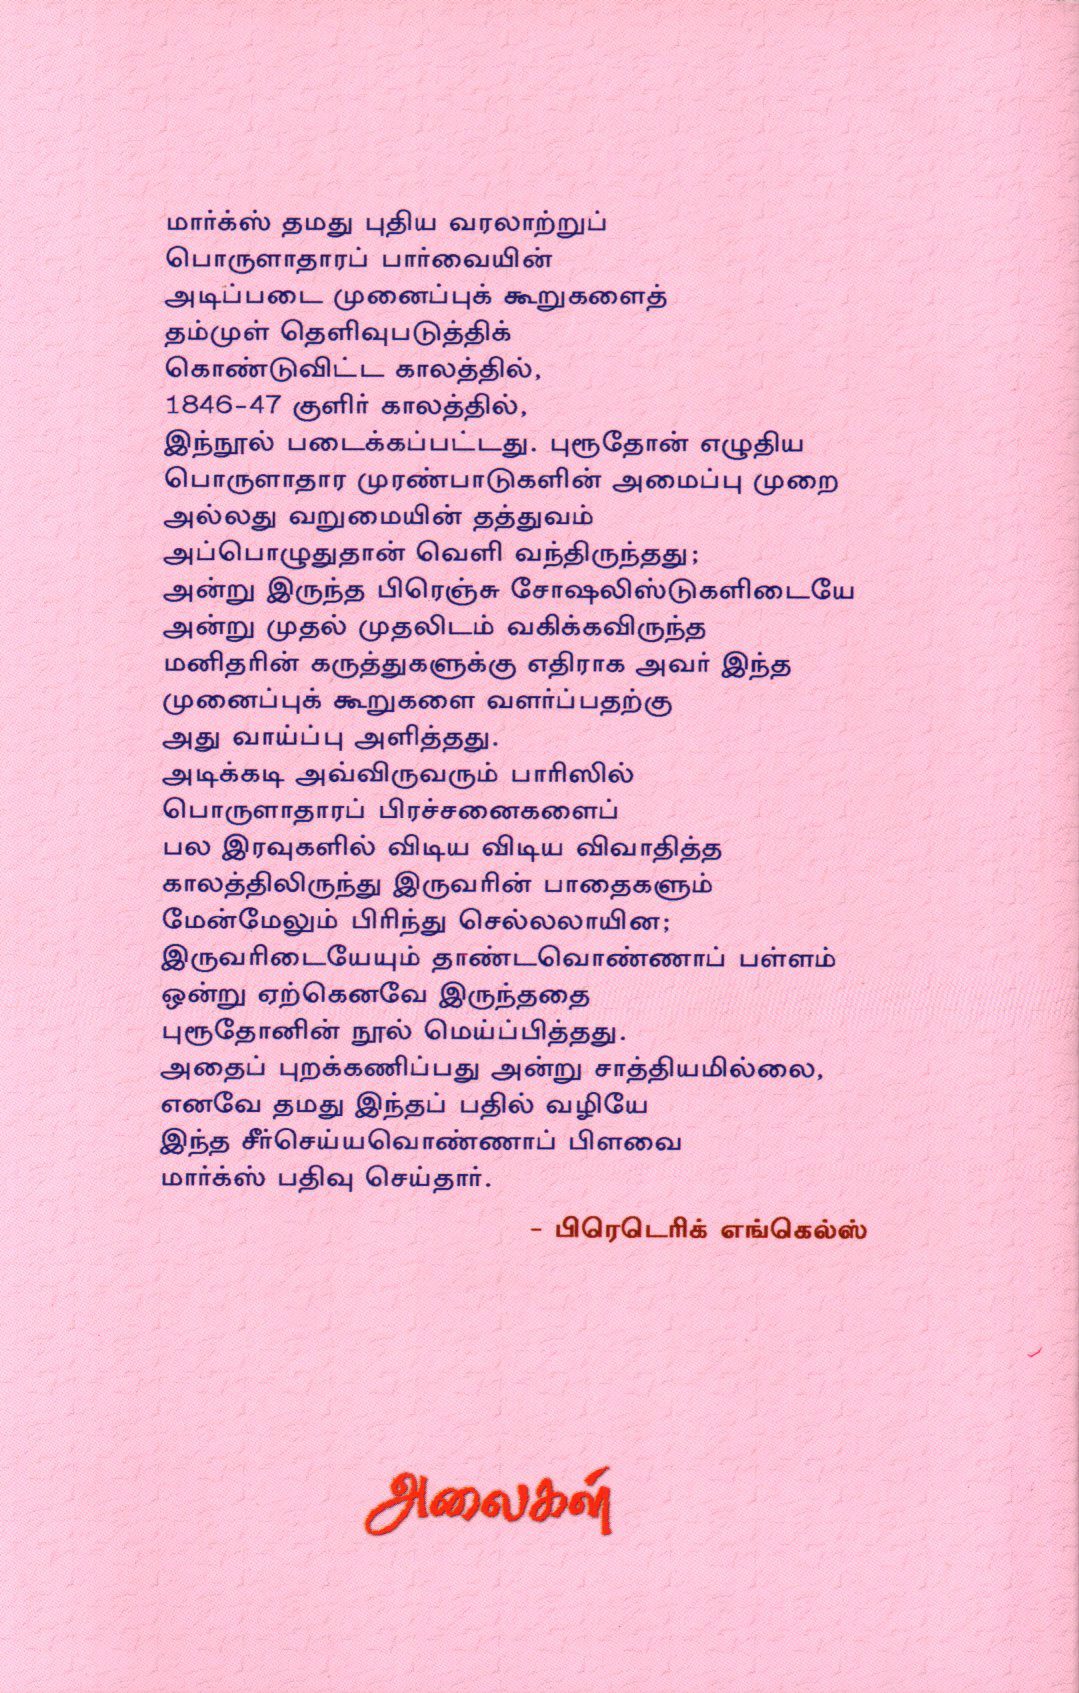 மார்க்ஸ் தமது புதிய வரலாற்றுப்
பொருளாதாரப் பார்வையின்
அடிப்படை முனைப்புக் கூறுகளைத்
தம்முள் தெளிவுபடுத்திக்
கொண்டுவிட்ட காலத்தில்,
1846-47 குளிர் காலத்தில்,
இந்நூல் படைக்கப்பட்டது. புரூதோன் எழுதிய
பொருளாதார முரண்பாடுகளின் அமைப்பு முறை
அல்லது வறுமையின் தத்துவம்
அப்பொழுதுதான் வெளி வந்திருந்தது;
அன்று இருந்த பிரெஞ்சு சோஷலிஸ்டுகளிடையே
அன்று முதல் முதலிடம் வகிக்கவிருந்த
மனிதரின் கருத்துகளுக்கு எதிராக அவர் இந்த
முனைப்புக் கூறுகளை வளர்ப்பதற்கு
அது வாய்ப்பு அளித்தது.
அடிக்கடி அவ்விருவரும் பாரிஸில்
பொருளாதாரப் பிரச்சனைகளைப்
பல இரவுகளில் விடிய விடிய விவாதித்த
காலத்திலிருந்து இருவரின் பாதைகளும்
மேன்மேலும் பிரிந்து செல்லலாயின;
இருவரிடையேயும் தாண்டவொண்ணாப் பள்ளம்
ஒன்று ஏற்கெனவே இருந்ததை
புரூதோனின் நூல் மெய்ப்பித்தது.
அதைப் புறக்கணிப்பது அன்று சாத்தியமில்லை,
எனவே தமது இந்தப் பதில் வழியே
இந்த சீர்செய்யவொண்ணாப் பிளவை
மார்க்ஸ் பதிவு செய்தார்.
- பிரெடெரிக் எங்கெல்ஸ்
அலைகள்